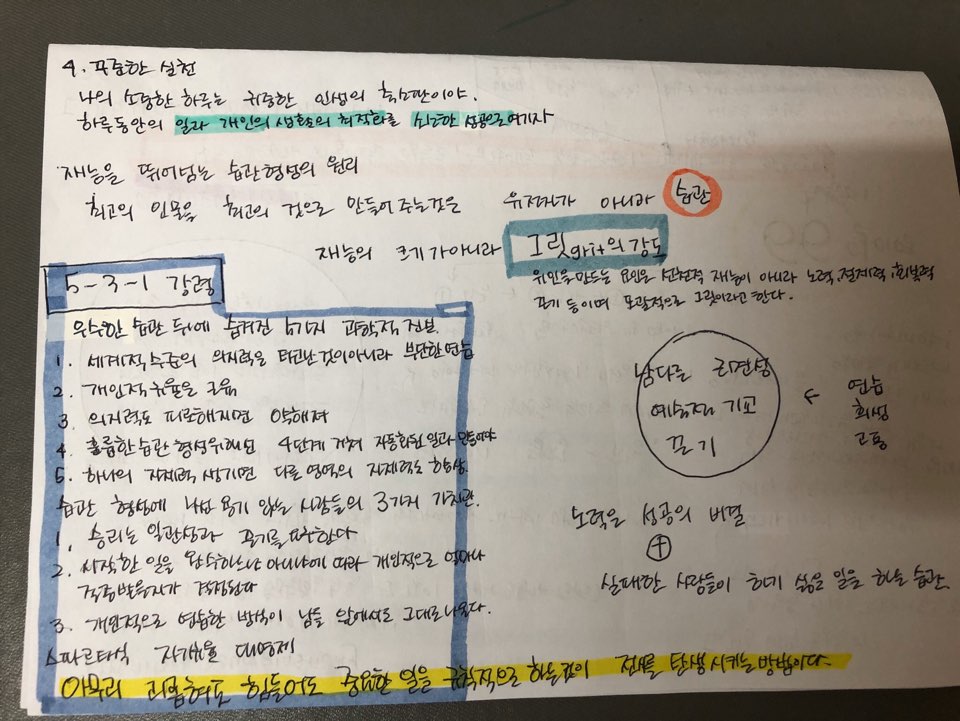 4. 꾸준한 실천
나의 소중한 하루는 귀중한 인생의 축소판이야.
하루동안의 일과 개인의 생활의 최적화를 뇌고한 성공으로여기자
재능을 뛰어넘는 습관형성의 원리
최고의 인물을 최고의 것으로 만들어주는것은 유전자가 아니라 습관
재능의 크기가아니라 그릿grit의 강도
위인을만드는 요인은 선천적 재능이 아니라 노력, 절제력, 회복력
끈기 등이며 포괄적으로 그릿이라고 한다.
5-3-1 강령
우수한 습관 뒤에 숨겨진 5가지 과학적 정보.
1. 세계적수준의 의지력은 타고난것이아니라 부단한연습
2. 개인적규율은 근육
3. 의지력도 피로해지면 약해져
4. 훌륭한습관 형성위해선 4단계 거쳐 자동화된일과 만들어야
5. 하나의 자제력 생기면 다른 영역의 자제력도 향상.
습관 형성에 나선 용기 있는 사람들의 3가지 가치관.
1. 승리는 일관성과 끈기를 요한다
2. 시작한 일을 완수하느냐 아니냐에 따라 개인적으로 얼마나
존중받을지가 결정된다
3. 개인적으로 연습한 방식이 남들 앞에서도 그대로나온다.
스파르타식 자제율 대명제
아무리 괴롭혀도 힘들어도 중요한 일을 규칙적으로 하는것이 전사를 탄생시키는방법이다.
남다른 일관성
예술적 기교
끈기
← 연습
희생
고통
노력은 성공의 비결
+
실패한 사람들이 하기 싫은 일을 하는 습관.